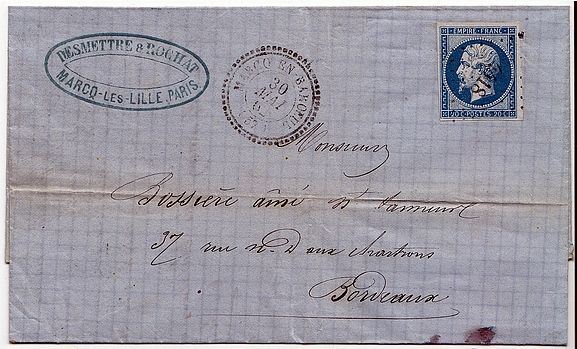 DESMETTRE & ROGHAT
MARCQ-LES-LILLE, PARIS
MARCQ EN BAROEUL
30
MAI
EMPIRE FRANC.
20 C. POSTES. 20 C.
Monsieur
Bossière aîné
37 rue N. D. aux chartrons
Bordeaux